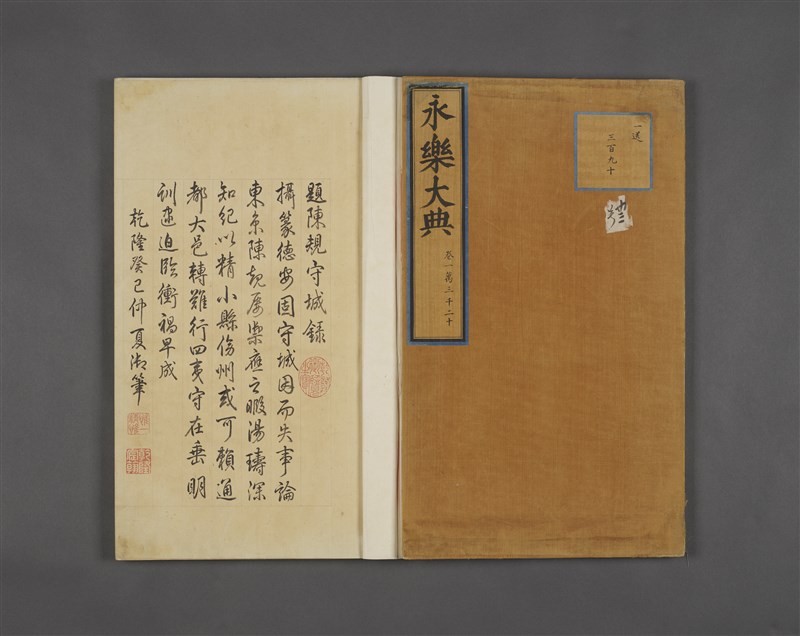 一送
三百九十
永樂大典
卷一萬三千二十
題陳規守城錄
攝篆德安固守城因而失事論
東京陳規屢禦應之暇湯璹深
知紀以精小縣傍州或可賴通
都大邑轉難行四夷守在垂明
訓逮迫臨衝禍早成
乾隆癸巳仲夏御筆